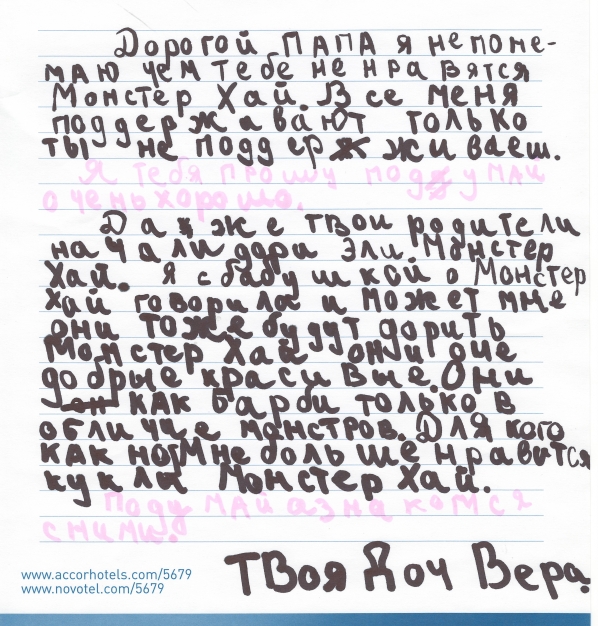 Дорогой ПАПА я не поне-
маю чем тебе не нравятся
Монстер Хай. Все меня
поддержавают только
ты не поддержживаеш.
Я тебя прошу подумай
очень хорошо.
Даже твои родители
начали дари эли Монстер
Хай. Я с бабушкой о Монстер
хай говорила и может мне
они тоже будут дорить
Монстер Хай они идие
добрые красивые. Они
как барби только в
обличие монстров. Для кого
как но мне больше нравится
куклы Монстер Хай.
Подумай азнакомся
сними.
www.accorhotels.com/5679
www.novotel.com/5679
Твоя Доч Вера.